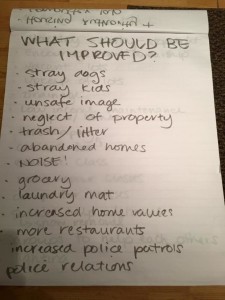 WHAT SHOULD BE
IMPROVED?
- stray dogs
- stray kids
- unsafe image
- neglect of property
- trash/litter
- abandoned homes
- NOISE!
- grocery
- laundry mat
- increased home values
- more restaurants
increased police patrols
police relations